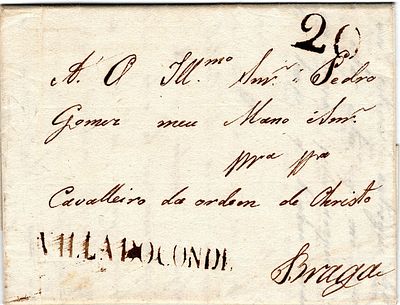 20
A. O Ill.mo Snr. Pedro
Gomez meu Mano e Snr.
ppra ppa
Cavalleiro da ordem de Christo
VILLADOCONDE
Braga